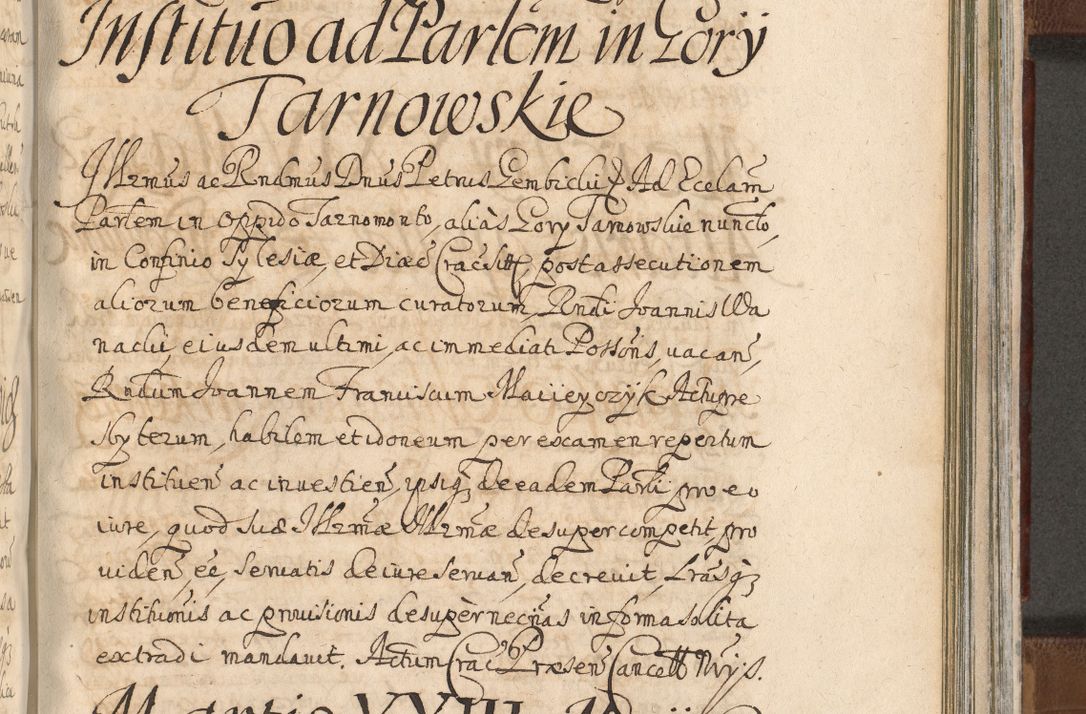 Institūo ad Parlem in Gory
Tarnowskie
Jllrmus ac Rndmus Dnus Petrus Gembicki Ad Ecclam
Parlem in oppido Tarnomonto, aliàs Gory Tarnowskie nuncto,
in Confinio Sylesiæ, et Diæc Crac sitt, post assecutionem
aliorum beneficiorum curatorum, Rndi Joannis Wa
nacki, eiusdem ultimi, ac immediati Possoris, vacan,
Rndum Joannem Franciscum Maciieyczÿk Act. pre
sbyterum, habilem et idoneum per examen repertum
instituen ac investien, ipsiq3 de eadem Parli pro eo
iure, quod suæ Jllrmæ Rmæ desuper competit, pro
viden, eē, servatis de iure servan, decrevit, Lrasq3
institutionis ac provisionis desupèr necrias in forma solita
extradi mandavit. Actum Crac Præsen Cancell N͞rijs.
Martio XXIII